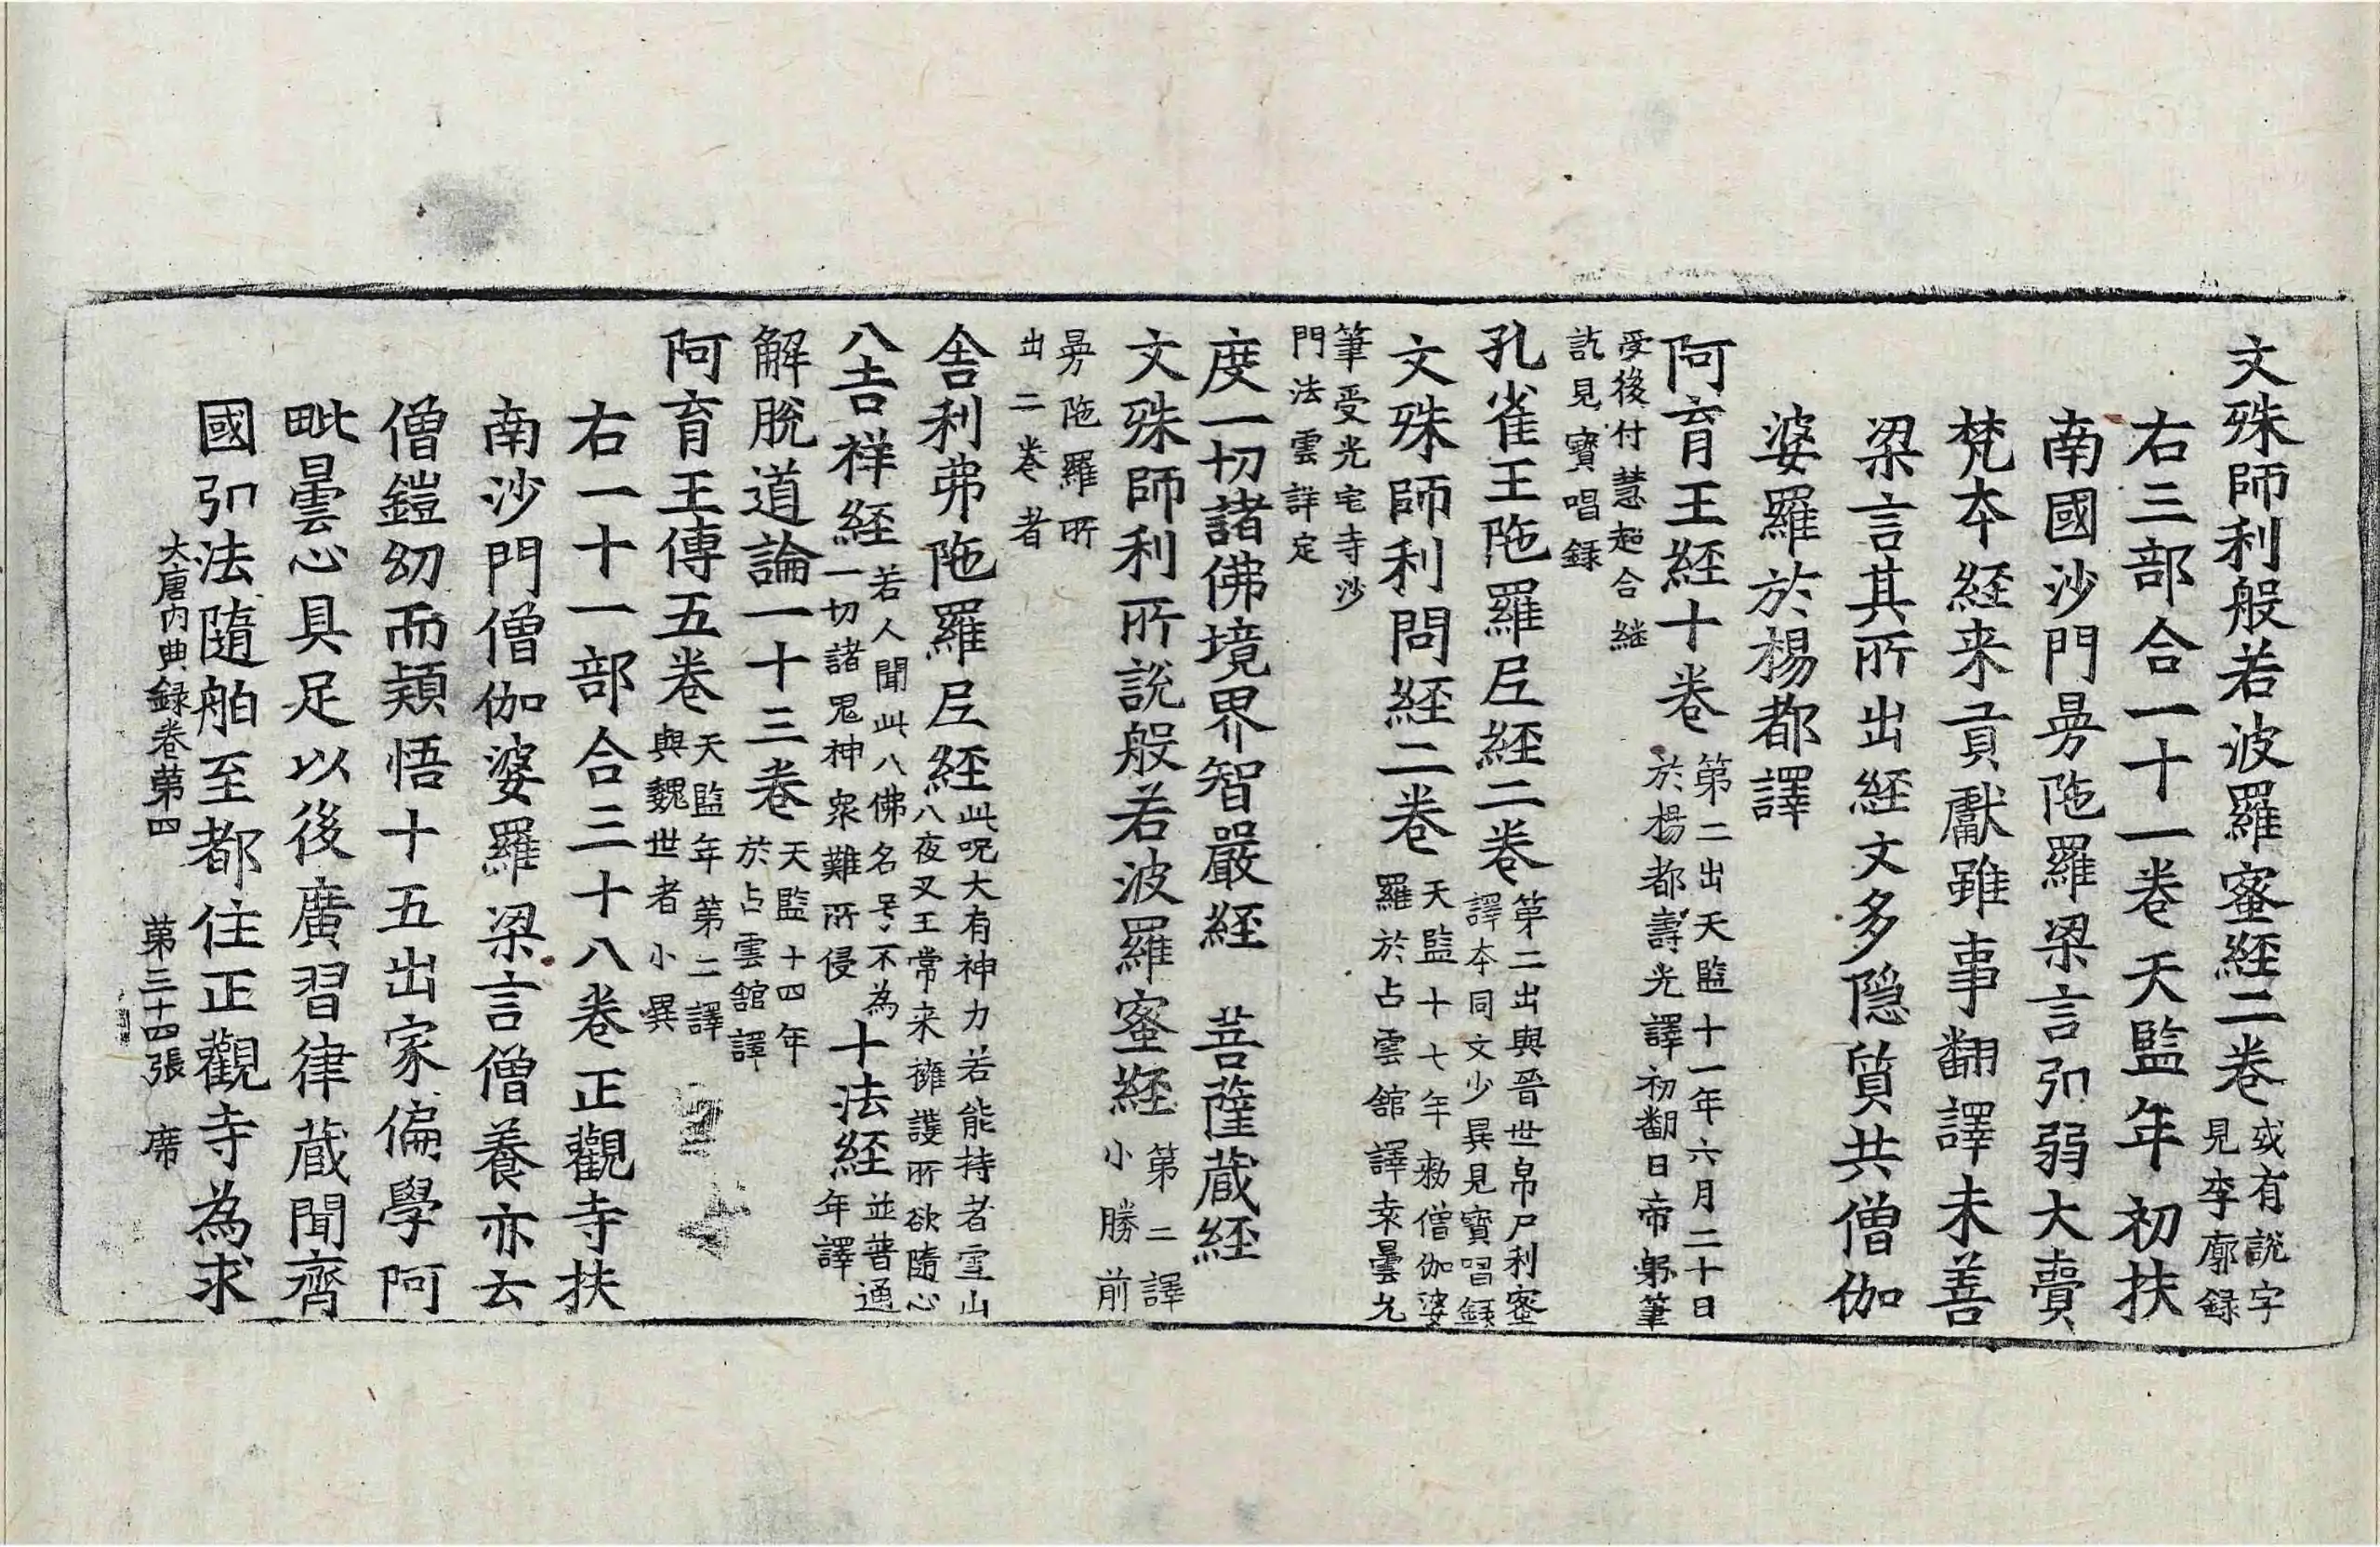 文殊師利般若波羅蜜經二卷或有說字見李廓録
右三部合一十一卷天監年初扶
南國沙門曼陁羅梁言弘弱大賷
梵本經来貢獻雖事翻譯未善
梁言其所出經文多隱質共僧伽
婆羅於楊都譯
阿育王經十卷第二出天監十一年六月二十日於楊都壽光譯初翻日帝躬筆
受後付慧超合継訖見寶唱録
孔雀王陁羅尼經二卷第二出與晋世帛尸利蜜譯本同文少異見寶唱録
文殊師利問經二卷天監十七年勑僧伽婆羅於占雲舘譯袁曇允
筆受光宅寺沙門法雲詳定
度一切諸佛境界智嚴經 菩薩蔵經
文殊師利所說般若波羅蜜經第二譯小勝前
曼陁羅所出二卷者
舍利弗陁羅尼經此呪大有神力若能持者雪山八夜叉王常来擁護所欲隨心
八吉祥經若人聞此八佛名号不為一切諸鬼神衆難所侵十法經並普通年譯
解脫道論一十三卷天監十四年於占雲舘譯
阿育王傳五卷天監年第二譯與魏世者小異
右一十一部合三十八卷正觀寺扶
南沙門僧伽婆羅梁言僧養亦云
僧鎧幼而頴悟十五出家偏學阿
毗曇心具足以後廣習律蔵聞齊
國弘法隨舶至都住正觀寺為求
大唐内典録卷苐四 苐三十四張 席